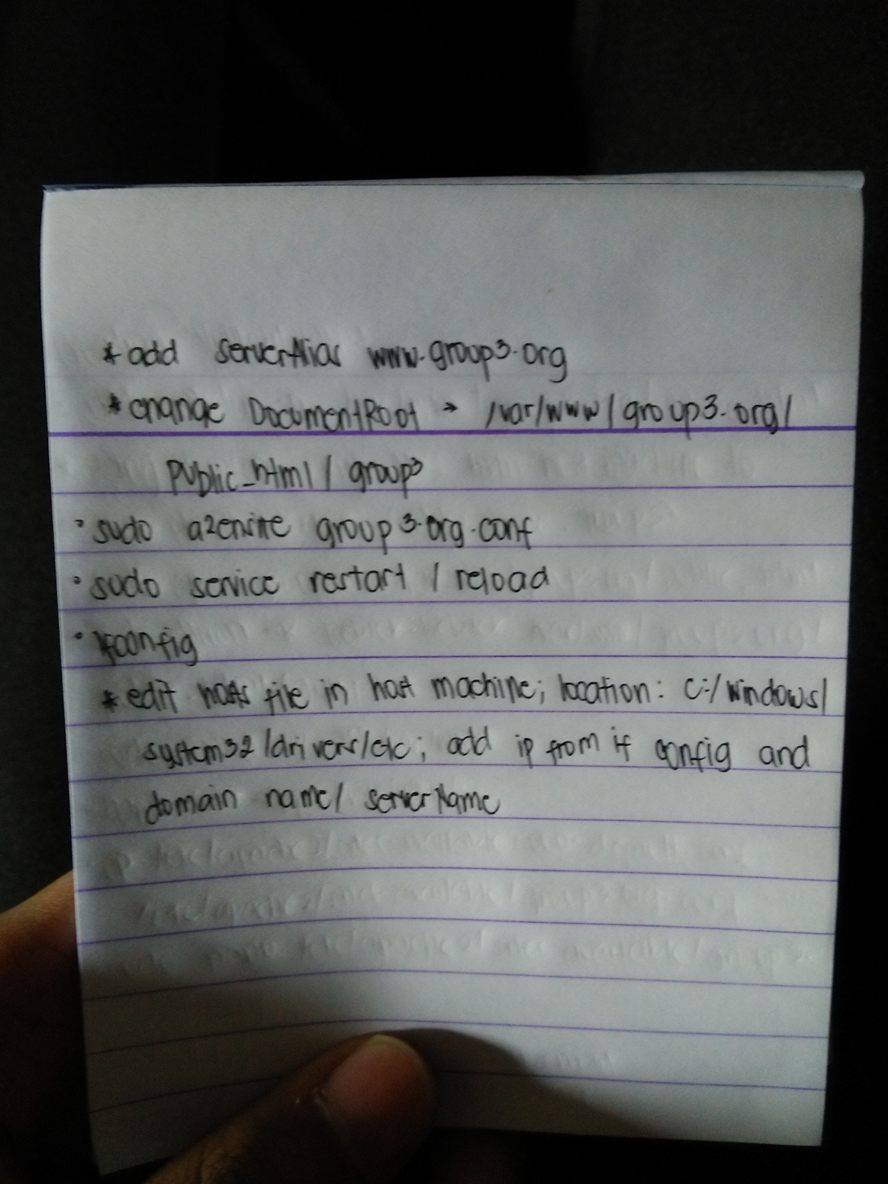 * add serverAlias www.group3.org
* change DocumentRoot → /var/www/group3.org/
public_html/group3
• sudo a2ensite group3.org.conf
• sudo service restart / reload
• ifconfig
* edit hosts file in host machine; location: C:/windows/
system32/drivers/etc; add ip from if config and
domain name/ serverName